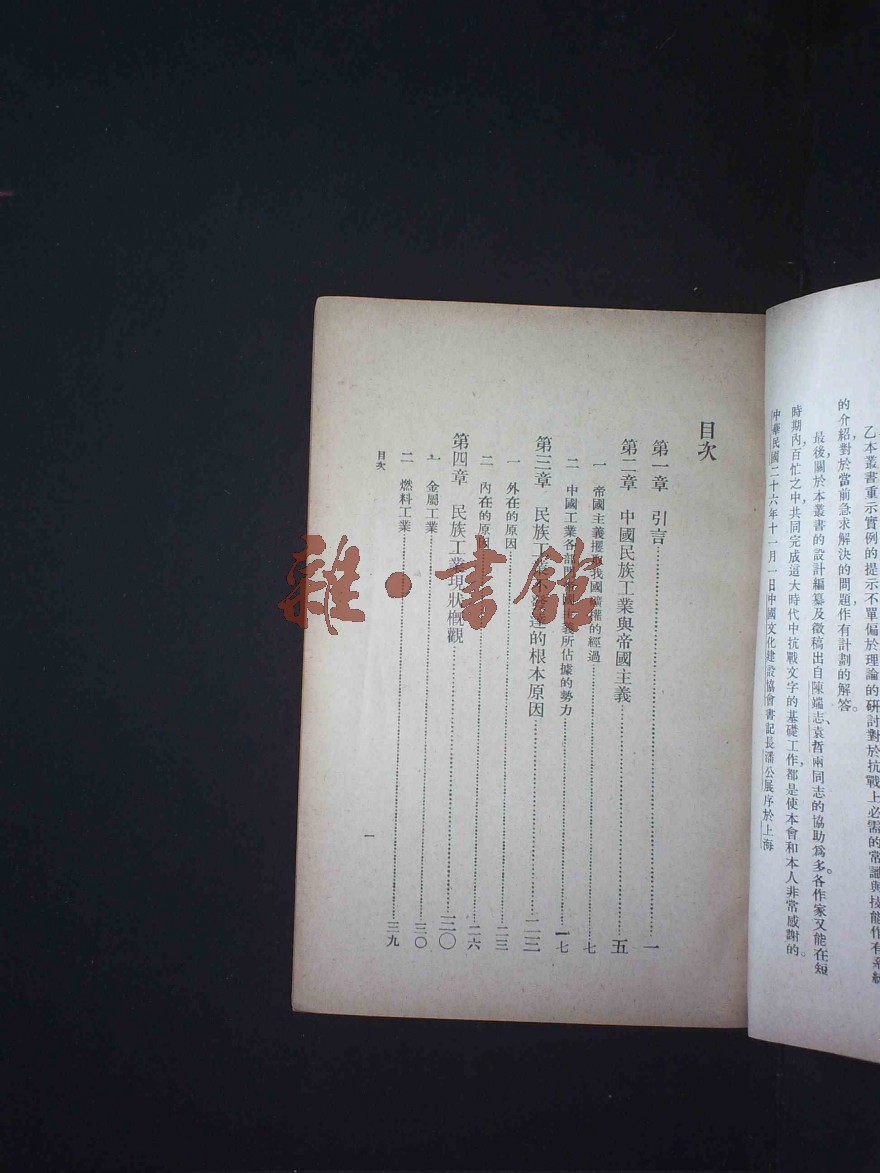 乙本叢書重示實例的提示不單偏於理論的研討對於抗戰上必需的常識與技能作有系統
的介紹對於當前急求解決的問題作有計劃的解答。
最後,關於本叢書的設計編纂及徵稿出自陳端志、袁哲兩同志的協助爲多。各作家又能在短
時期內,百忙之中,共同完成這大時代中抗戰文字的基礎工作,都是使本會和本人非常感謝的。
中華民國二十六年十一月一日中國文化建設協會書記長潘公展序於上海
目次
第一章 引言 一
第二章 中國民族工業與帝國主義 五
一 帝國主義攫取我國礦權的經過 七
二 中國工業各部門帝國主義所佔據的勢力 一七
第三章 民族工業不發達的根本原因 二三
一 外在的原因 二三
二 內在的原因 二六
第四章 民族工業現狀概觀 三〇
一 金屬工業 三〇
二 燃料工業 三九
目次
一
雜·書館